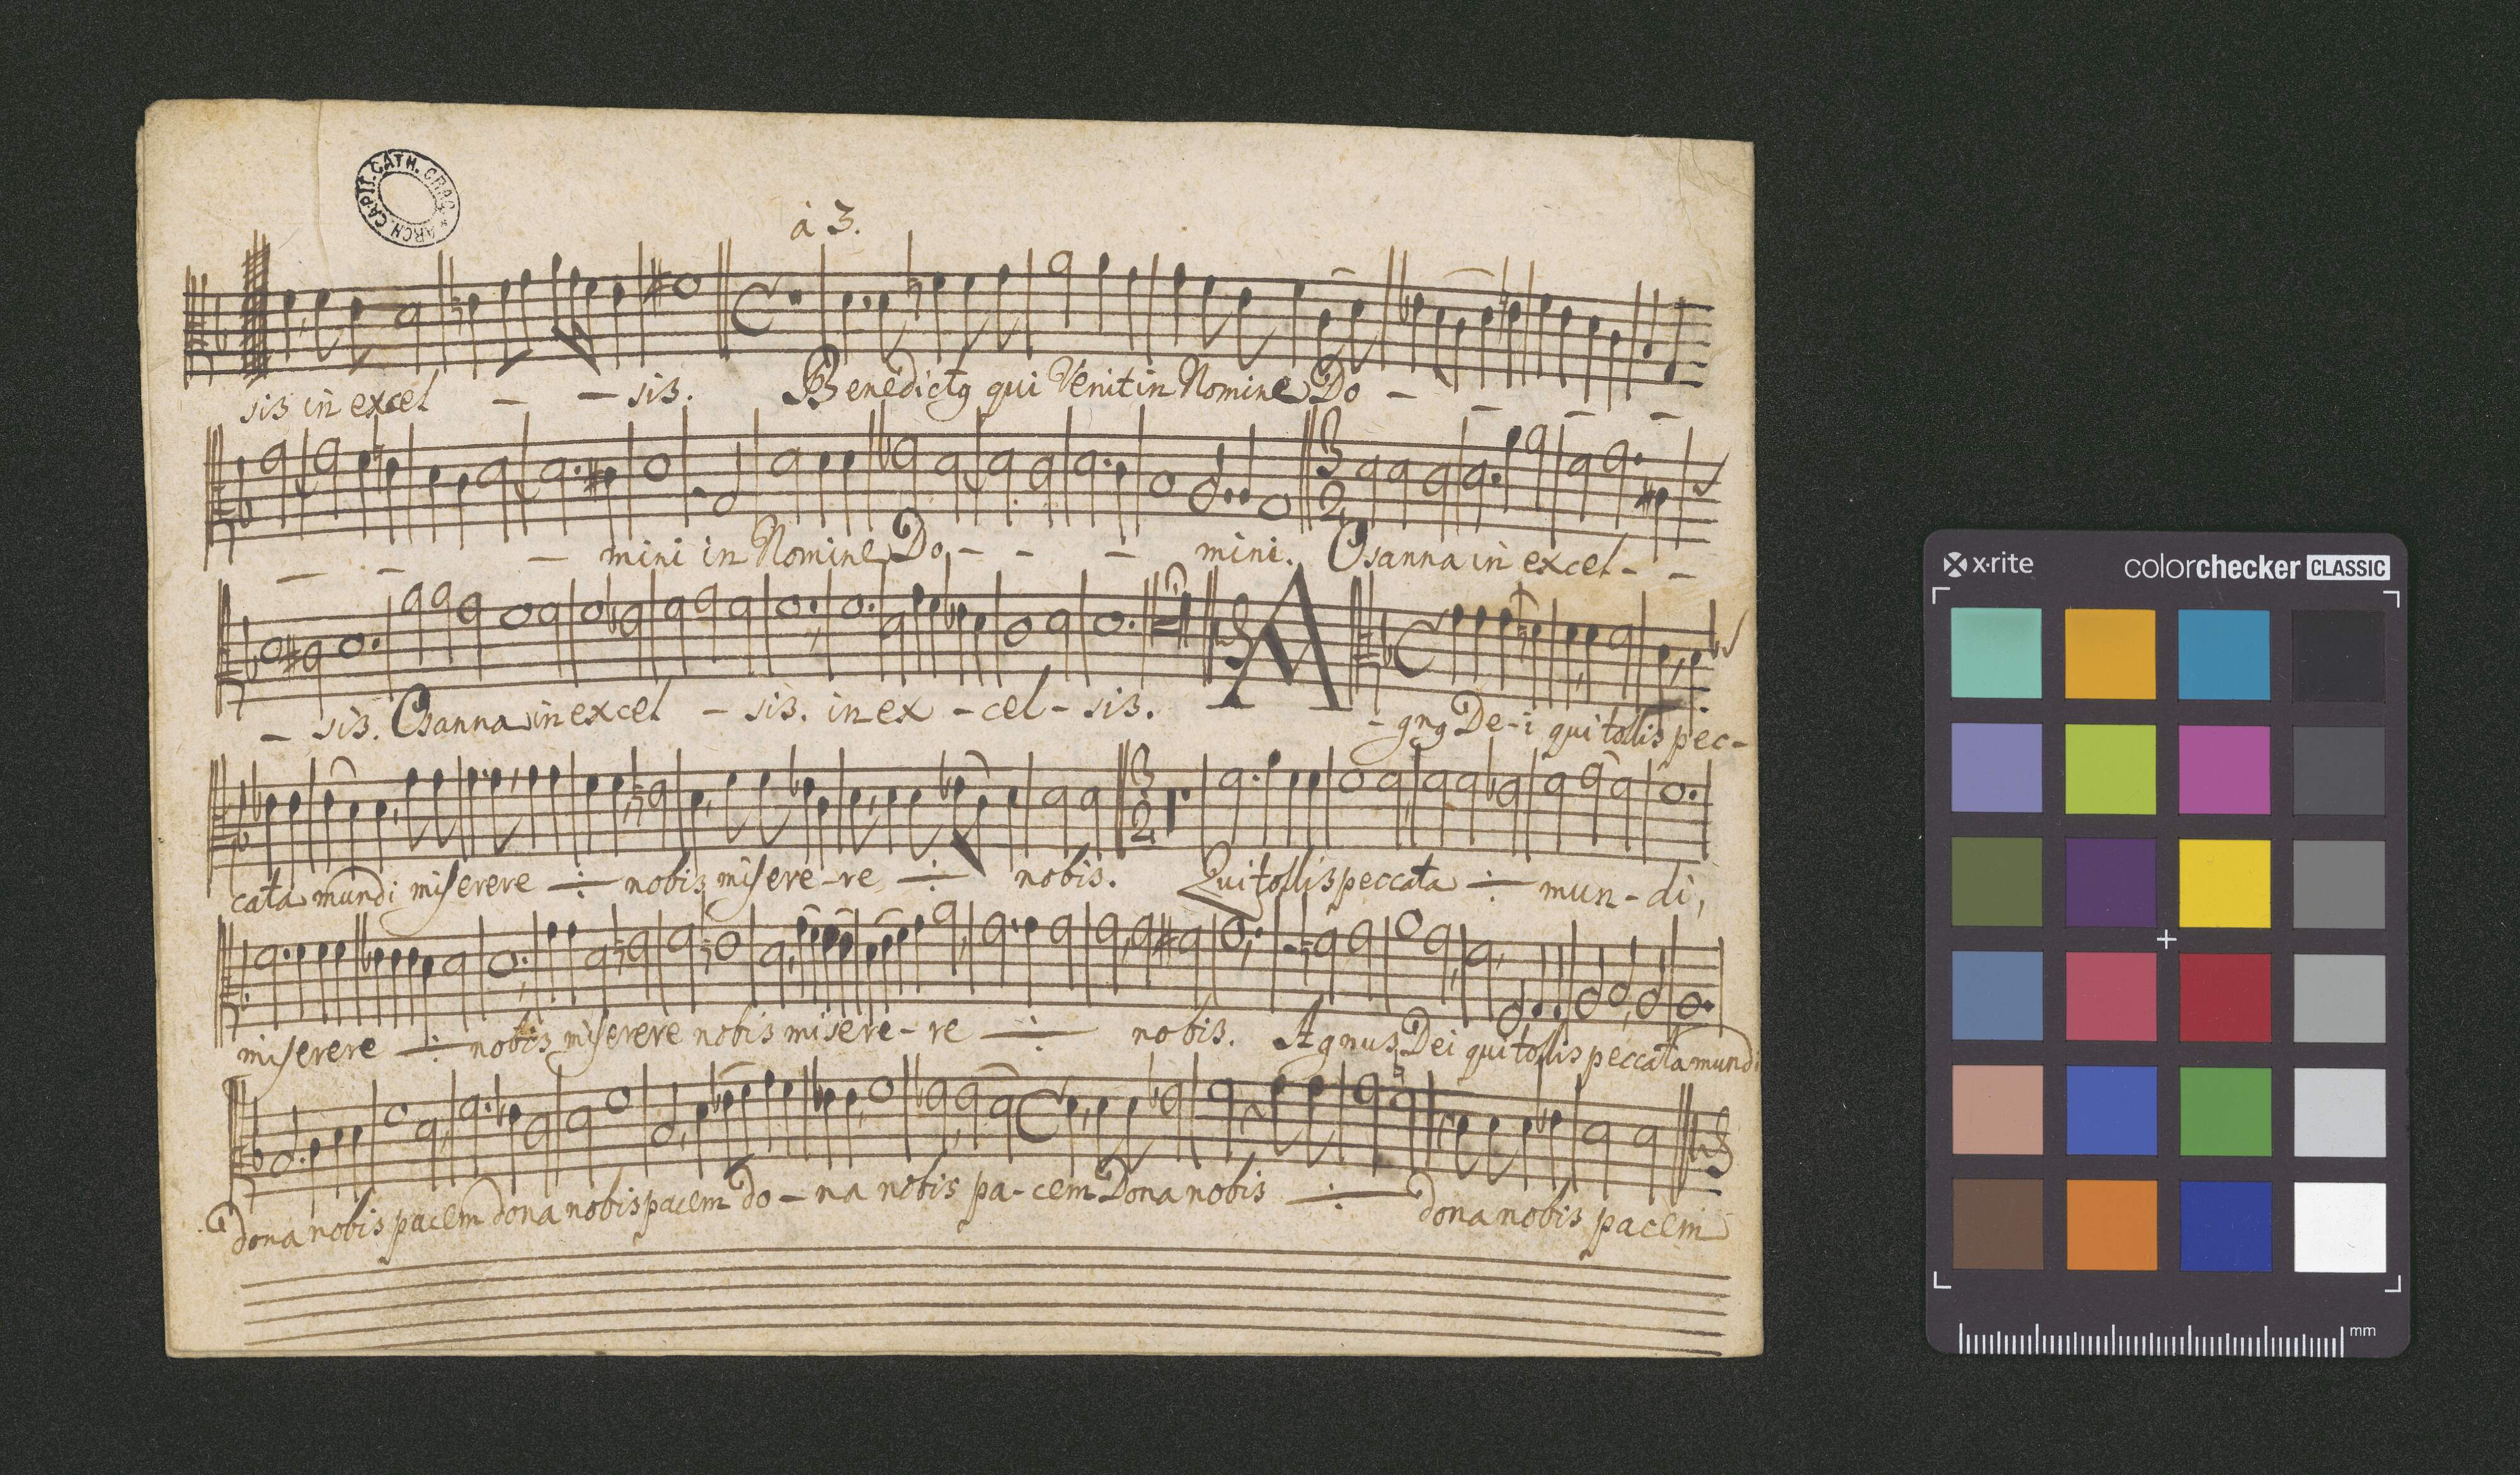 ARCH. CAPIT. CATH. CRAC.
à 3.
sis in excel - - sis. Benedictꝯ qui Venit in Nomine Do - - - -
- - - mini in Nomine Do - - - mini. Osanna in excel - -
- sis. Osanna in excel - sis. in ex - cel - sis. A - gnꝯ De-i qui tollis pec-
cata mundi miserere ÷ nobis misere-re ÷ nobis. Qui tollis peccata ÷ mun-di,
miserere ÷ nobis miserere nobis misere-re ÷ nobis. Agnus Dei qui tollis peccata mundi
Dona nobis pacem dona nobis pacem do-na nobis pa-cem Dona nobis ÷ dona nobis pacem
x·rite colorchecker CLASSIC
mm